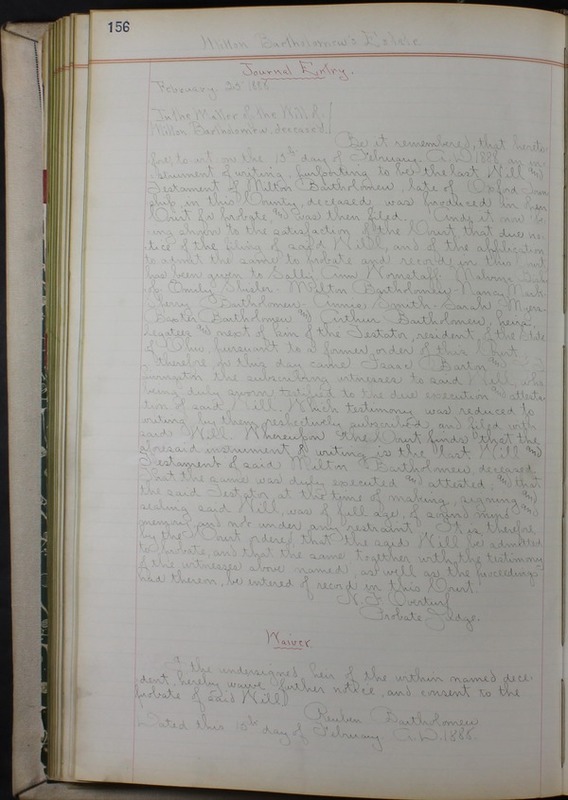 156
Milton Bartholomew's Estate
Journal Entry.
February 25 1888
In the Matter of the Will of
Milton Bartholomew, deceased
Be it remembered, that hereto-
fore to wit on the 15th day of February A.D. 1888 an in-
strument of writing, purporting to be the last Will and
Testament of Milton Bartholomew, late of Oxford Town
ship, in this County, deceased, was produced in open
Court for probate and was then filed. And it now be
ing shown to the satisfaction of the Court that due no-
tice of the filing of said Will, and of the application
to admit the same to probate and record in this Court
has been given to Sally Ann
Emily Milton Bartholomew Nancy
Perry Bartholomew Annie Smith Sarah
Baxter Bartholomew and Arthur Bartholomew, heirs
legatees and next of kin of the Testator, resident of the State
of Ohio pursuant to a former order of this Court.
therefore, on this day came Isaac Barton and
the subscribing witnesses to said Will, who
being duly sworn testified to the due execution and attesta-
tion of said Will. Which testimony was reduced to
writing by them respectively subscribed and filed with
said Will. Whereupon the Court finds that the
aforesaid instrument of writing is the last Will and
Testament of said Milton Bartholomew deceased
that the same was duly executed and attested, and that
the said Testator, at the time of making, signing and
sealing said Will, was of full age, of sound mind and
memory, and not under any restraint. It is therefore
by the Court ordered that the said Will be admitted
to probate, and that the same together with the testimony
of the witnesses above named, as well as the proceedings
had thereon, be entered of record in this Court.
N. F. Overturf
Probate Judge.
Waiver
I the undersigned, heir of the within named dece
dent, hereby waive further notice, and consent to the
probate of said Will)
Reuben Bartholomew
Dated this 15th day of February A.D. 1888.